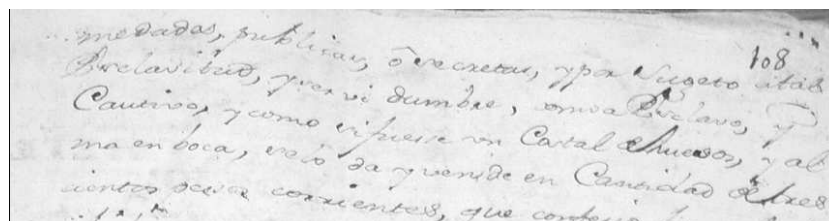 108
medadas, publicas, ô secretas, y por Sugeto atal
Esclavitud, y servidumbre, como a Esclavo, y
Cautivo, y como si fuesse un Costal de huesos, y al
ma en boca, se lo da y vende en Cantidad de tres
cientos pesos corrientes, que